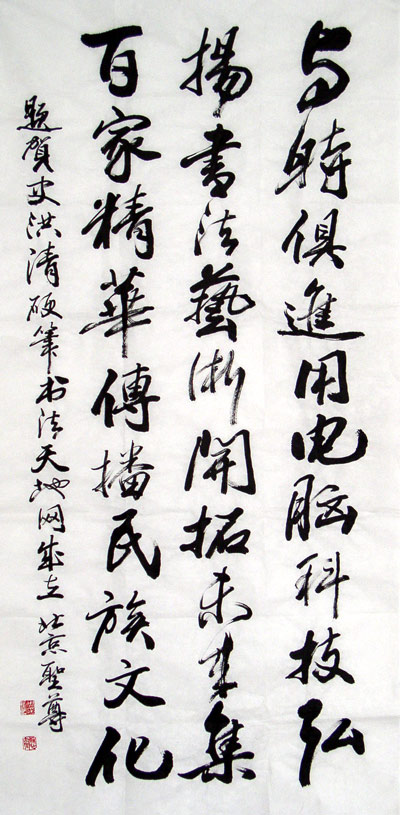 与時俱進用电脑科技弘
揚書法藝術開拓未来集
百家精華傳播民族文化
题贺史洪清硬筆书法天地网成立 北京聖尊